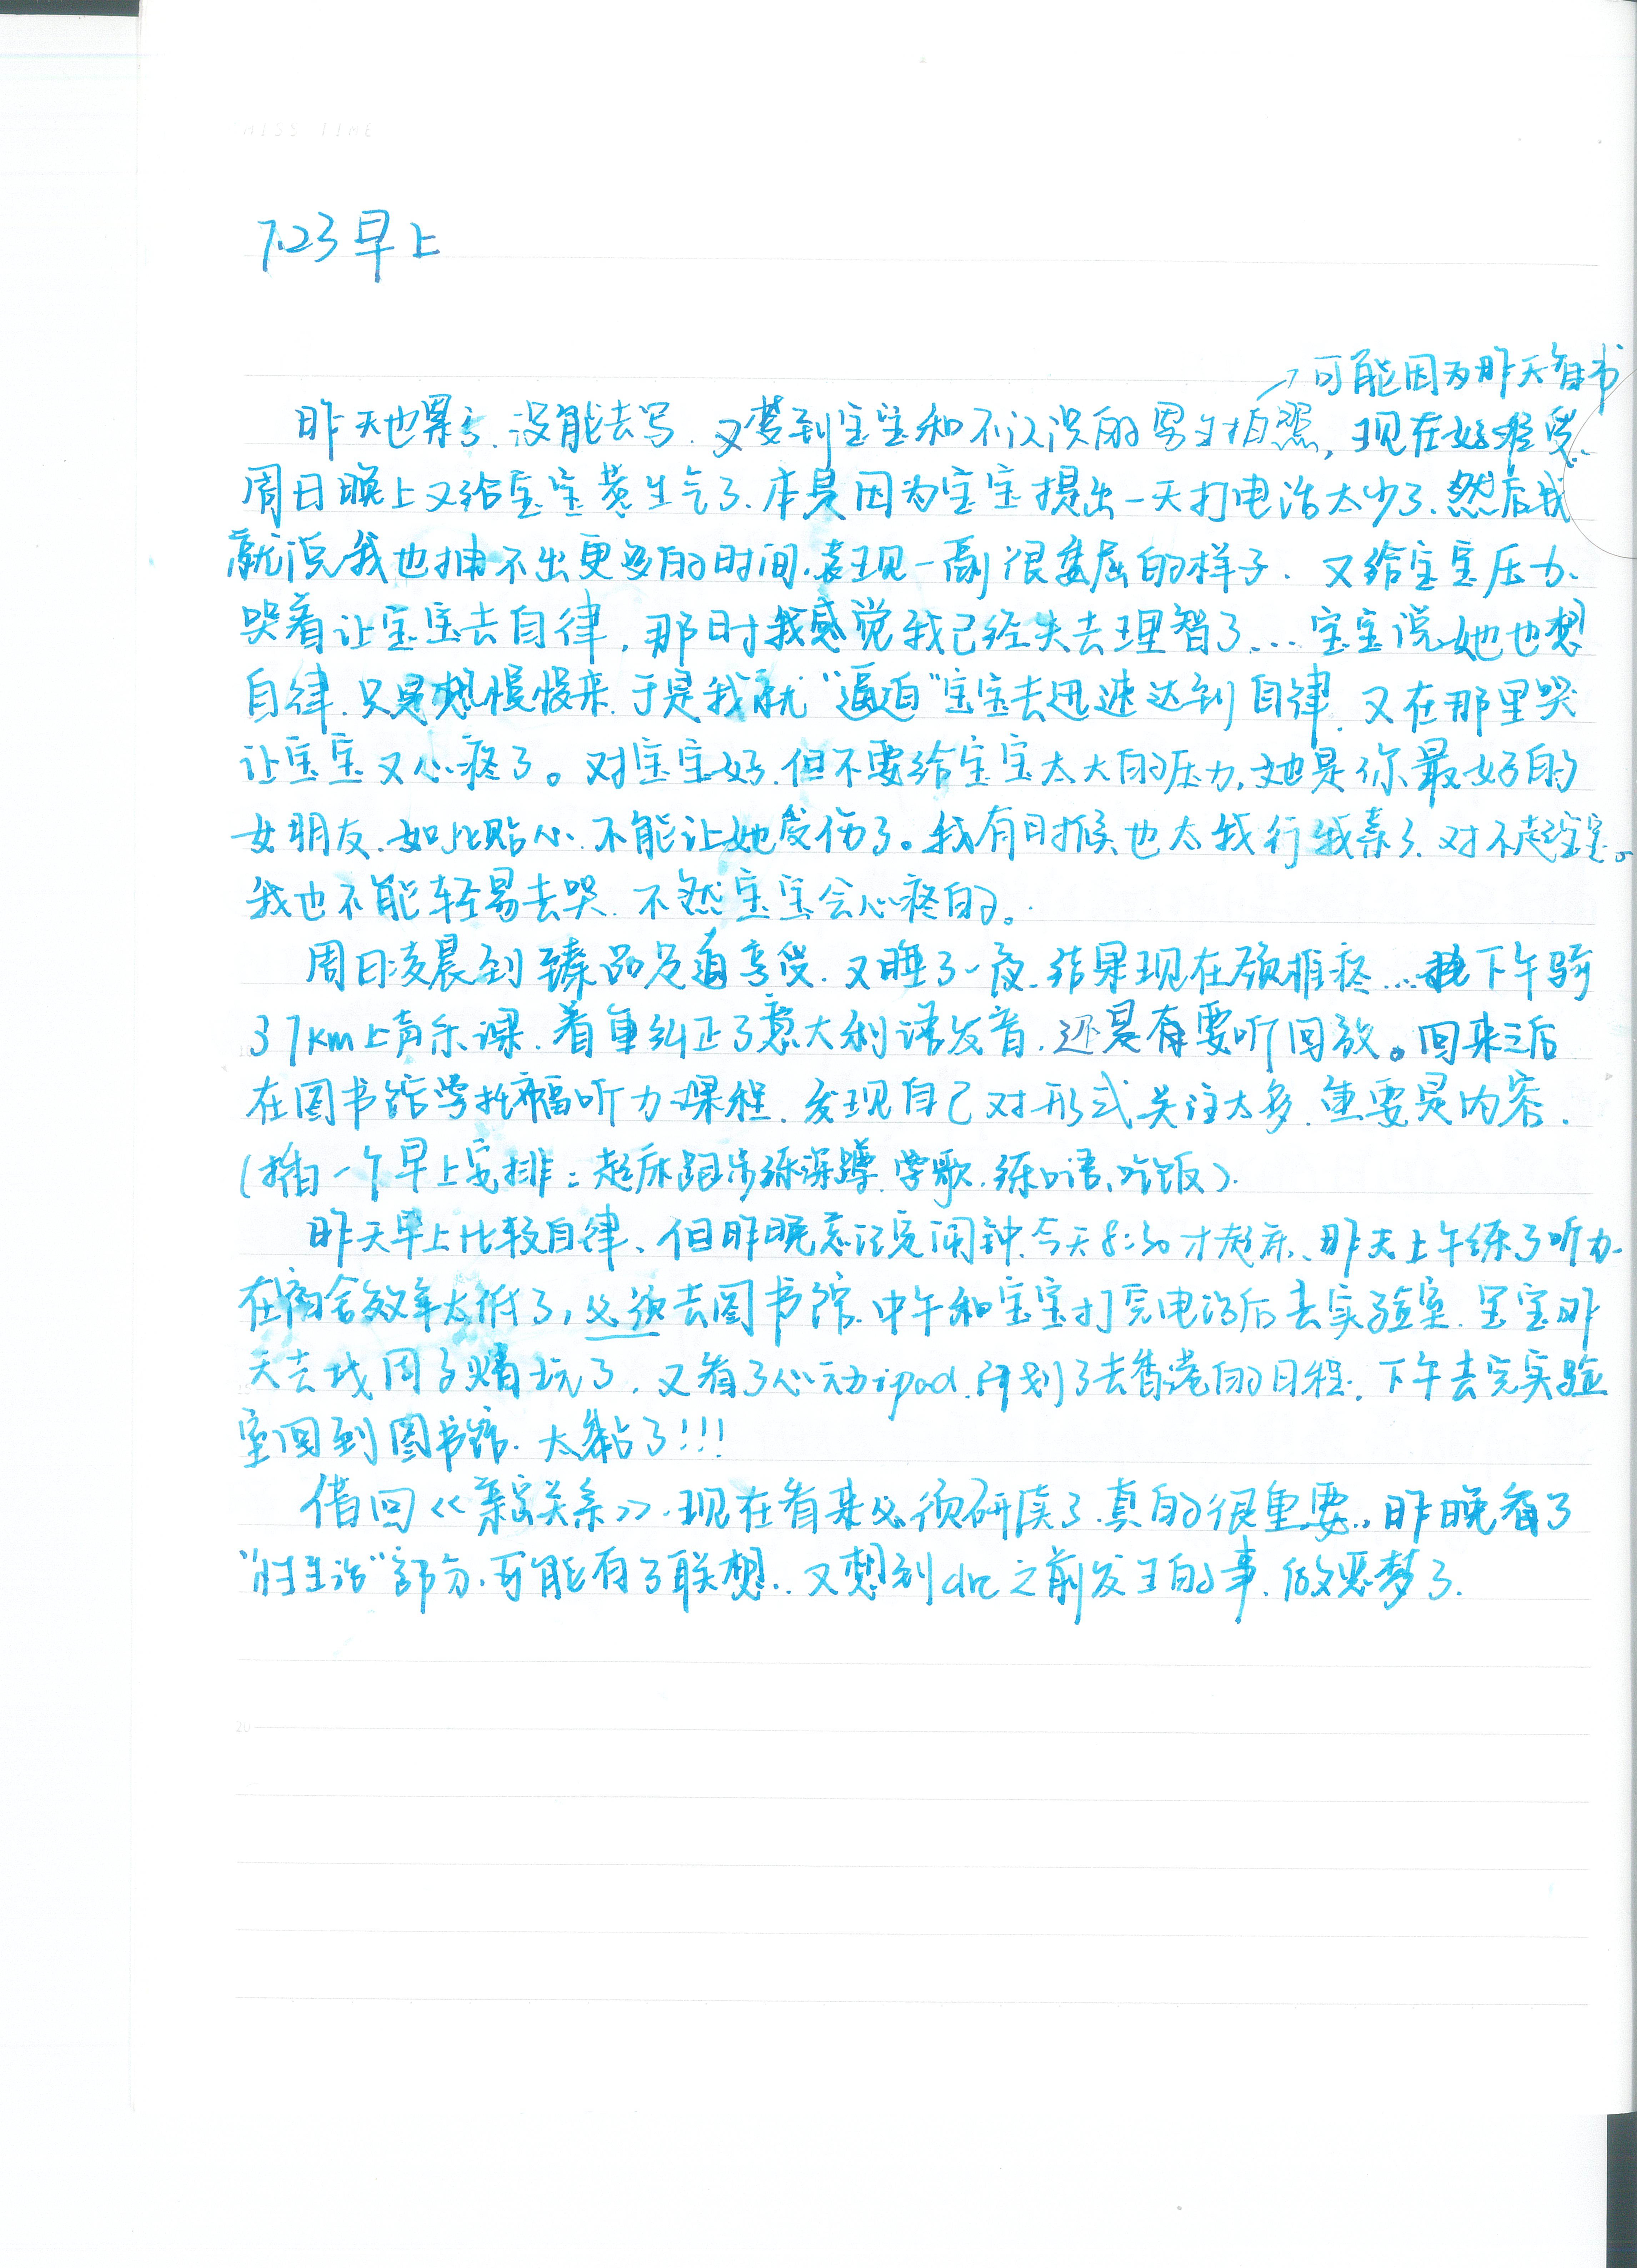 MISS TIME
7.23 早上
→可能因为昨天看书
昨天也累了.没能去写.又梦到宝宝和不认识的男生拍照,现在好难受.
周日晚上又给宝宝惹生气了.本是因为宝宝提出一天打电话太少了.然后我
就说我也抽不出更多的时间.表现一副很委屈的样子.又给宝宝压力.
哭着让宝宝去自律,那时我感觉我已经失去理智了...宝宝说她也想
自律.只是想慢慢来.于是我就“逼迫”宝宝去迅速达到自律.又在那里哭
让宝宝又心疼了。对宝宝好.但不要给宝宝太大的压力,她是你最好的
女朋友.如此贴心.不能让她受伤了。我有时候也太我行我素了.对不起宝宝。
我也不能轻易去哭.不然宝宝会心疼的。
周日凌晨到臻品足道享受.又睡了一夜.结果现在颈椎疼...下午骑
37km上声乐课.着重纠正了意大利语发音.还是有要听回放。回来之后
在图书馆学托福听力课程.发现自己对形式关注太多.重要是内容.
(插一个早上安排:起床跑步练深蹲.学歌.练口语、吃饭).
昨天早上比较自律、但昨晚忘记定闹钟.今天8:30才起床、昨天上午练了听力.
在宿舍效率太低了,必须去图书馆.中午和宝宝打完电话后去实验室.宝宝昨
天去找周子婧玩了,又看了心动ipad.计划了去香港的日程.下午去完实验
室回到图书馆.太黏了!!!
借回<<亲密关系>>.现在看来必须研读了.真的很重要..昨晚看了
“性生活”部分.可能有了联想..又想到 之前发生的事.做恶梦了.
20